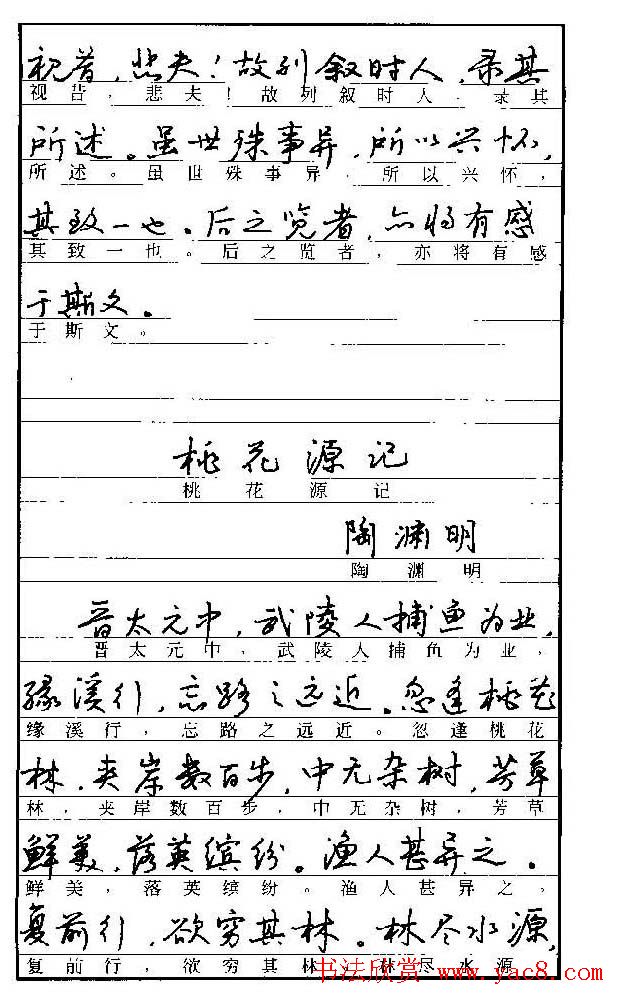 视昔，悲夫！故列叙时人，录其
视昔，悲夫！故列叙时人，录其
所述。虽世殊事异，所以兴怀，
所述。虽世殊事异，所以兴怀，
其致一也。后之览者，亦将有感
其致一也。后之览者，亦将有感
于斯文。
于斯文。
桃花源记
桃花源记
陶渊明
陶渊明
晋太元中，武陵人捕鱼为业，
晋太元中，武陵人捕鱼为业，
缘溪行，忘路之远近。忽逢桃花
缘溪行，忘路之远近。忽逢桃花
林，夹岸数百步，中无杂树，芳草
林，夹岸数百步，中无杂树，芳草
鲜美，落英缤纷。渔人甚异之。
鲜美，落英缤纷。渔人甚异之，
复前行，欲穷其林。林尽水源，
复前行，欲穷其林。林尽水源
书法欣赏 www.yac8.com